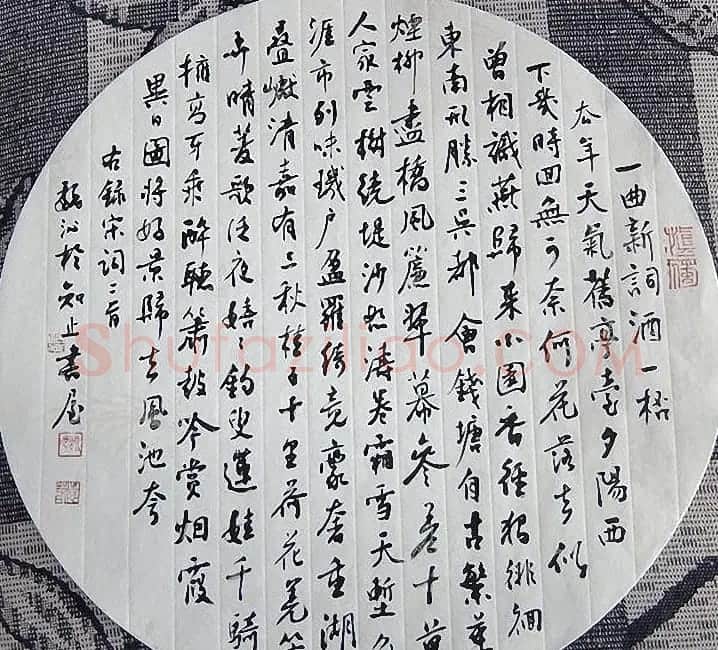 一曲新詞酒一桮
去年天氣舊亭臺夕陽西
下幾時回無可奈何花落去似
曾相識燕歸來小園香徑獨徘徊
東南形勝三吳都會錢塘自古繁華
煙柳畫橋風簾翠幕參差十萬
人家雲樹繞堤沙怒濤卷霜雪天塹無
涯市列珠璣戶盈羅綺競豪奢重湖
疊巘清嘉有三秋桂子十里荷花羌管
弄晴菱歌泛夜嬉々釣叟蓮娃千騎
擁高牙乘醉聽簫鼓吟賞烟霞
異日圖將好景歸去鳳池夸
右録宋詞二首
於知止書屋
Shufaziliao.com